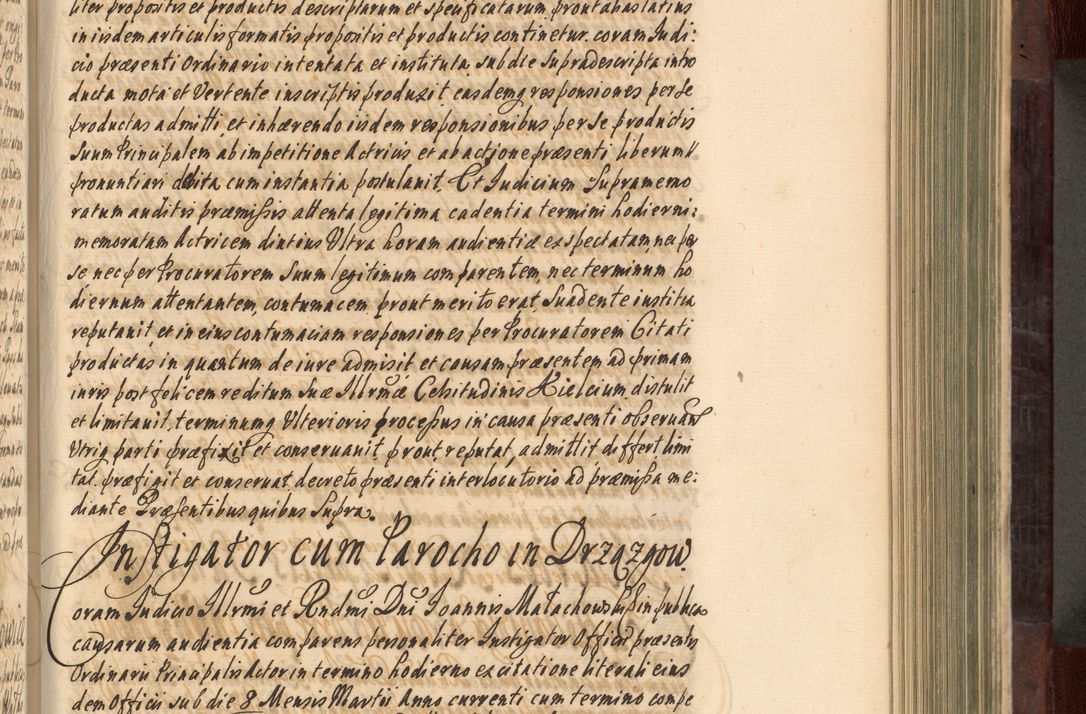 liter propositis et productis descriptarum et specificatarum prout abas latius
in iisdem articulis formatis propositis et productis continetur. coram Judi:
cio præsenti Ordinario intentata et instituta. sub die supradescripta intro
ducta mota et Vertente inscriptis produxit easdemq responsiones per se
productas admitti, et inhærendo iisdem responsionibus per se productis
suum Principalem ab impetitione Actricis et ab actione præsenti liberum
pronuntiari debita cum instantia postulavit. Et Judicium Supramemo
ratum auditis præmissis attenta legitima cadentia termini hodierni:
memoratam Actricem diutius Ultra horam audientiæ exspectatam, nec per
se nec per Procuratorem suum legitimum comparentem, nec terminum ho
diernum attentantem, contumacem prout merito erat, Suadente iustitia
reputauit, et in eius contumaciam responsiones per Procuratorem Citati
productas in quantum de iure admisit et causam præsentem ad primam
iuris post felicem reditum suæ Illrmæ Celsitudinis Kielcium distulit
et limitauit, terminumq Ulterioris processus in causa præsenti obseruan
Utriq parti præfixit et conseruauit. prout reputat, admittit differt, limi
tat. præfigit et conseruat decreto præsenti interlocutorio ad præmissa me:
diante Præsentibus quibus Supra.
Instigator cum Parocho in Drzązgow.
Coram Judicio Illrmi et Rndmi Dni Joannis Małachowski in publica
causarum audientia comparens personaliter Instigator Officii præsentis
Ordinarii Principalis Actor in termino hodierno ex citatione literali eius
dem Officii sub die 8 Mensis Martii Anno currenti cum termino compe